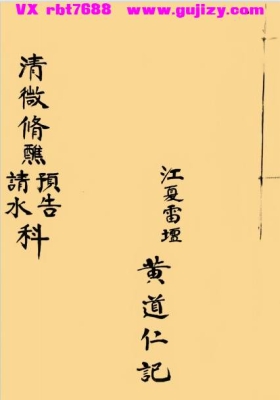 VX rbt7688 www.gujizy.com
清微脩醮
預告
請水
科
江夏雷壇
黄道仁記